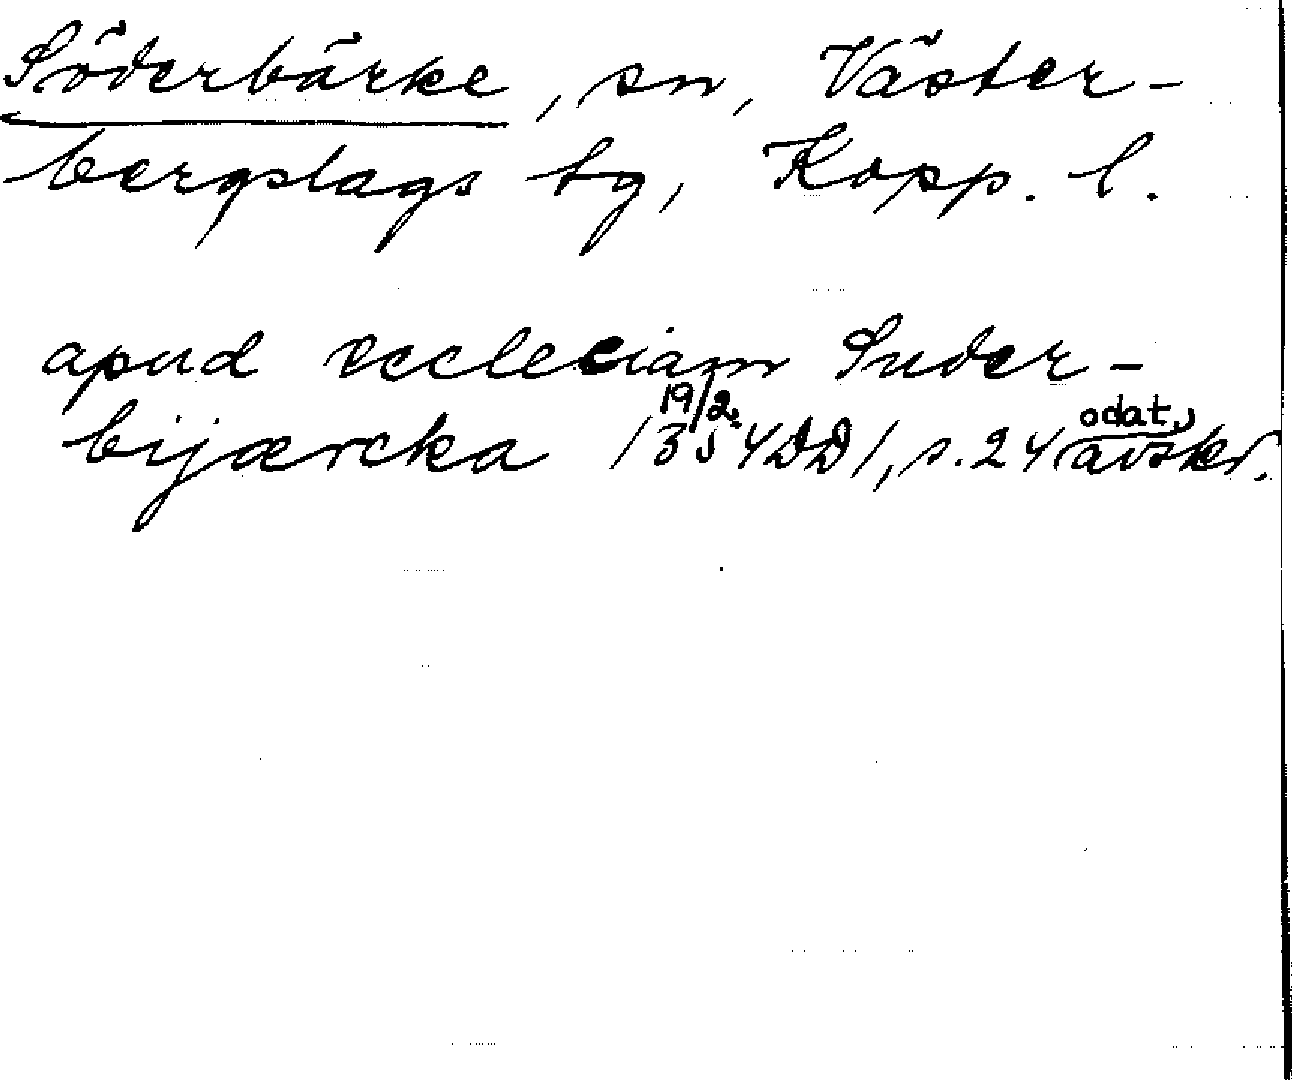 Söderbärke, sn, Väster-
bergslags tg, Kopp. l.
apud eccleciam Suder-
bijærcka 19/2. 1354 DD 1, s. 24 odat. avskr.